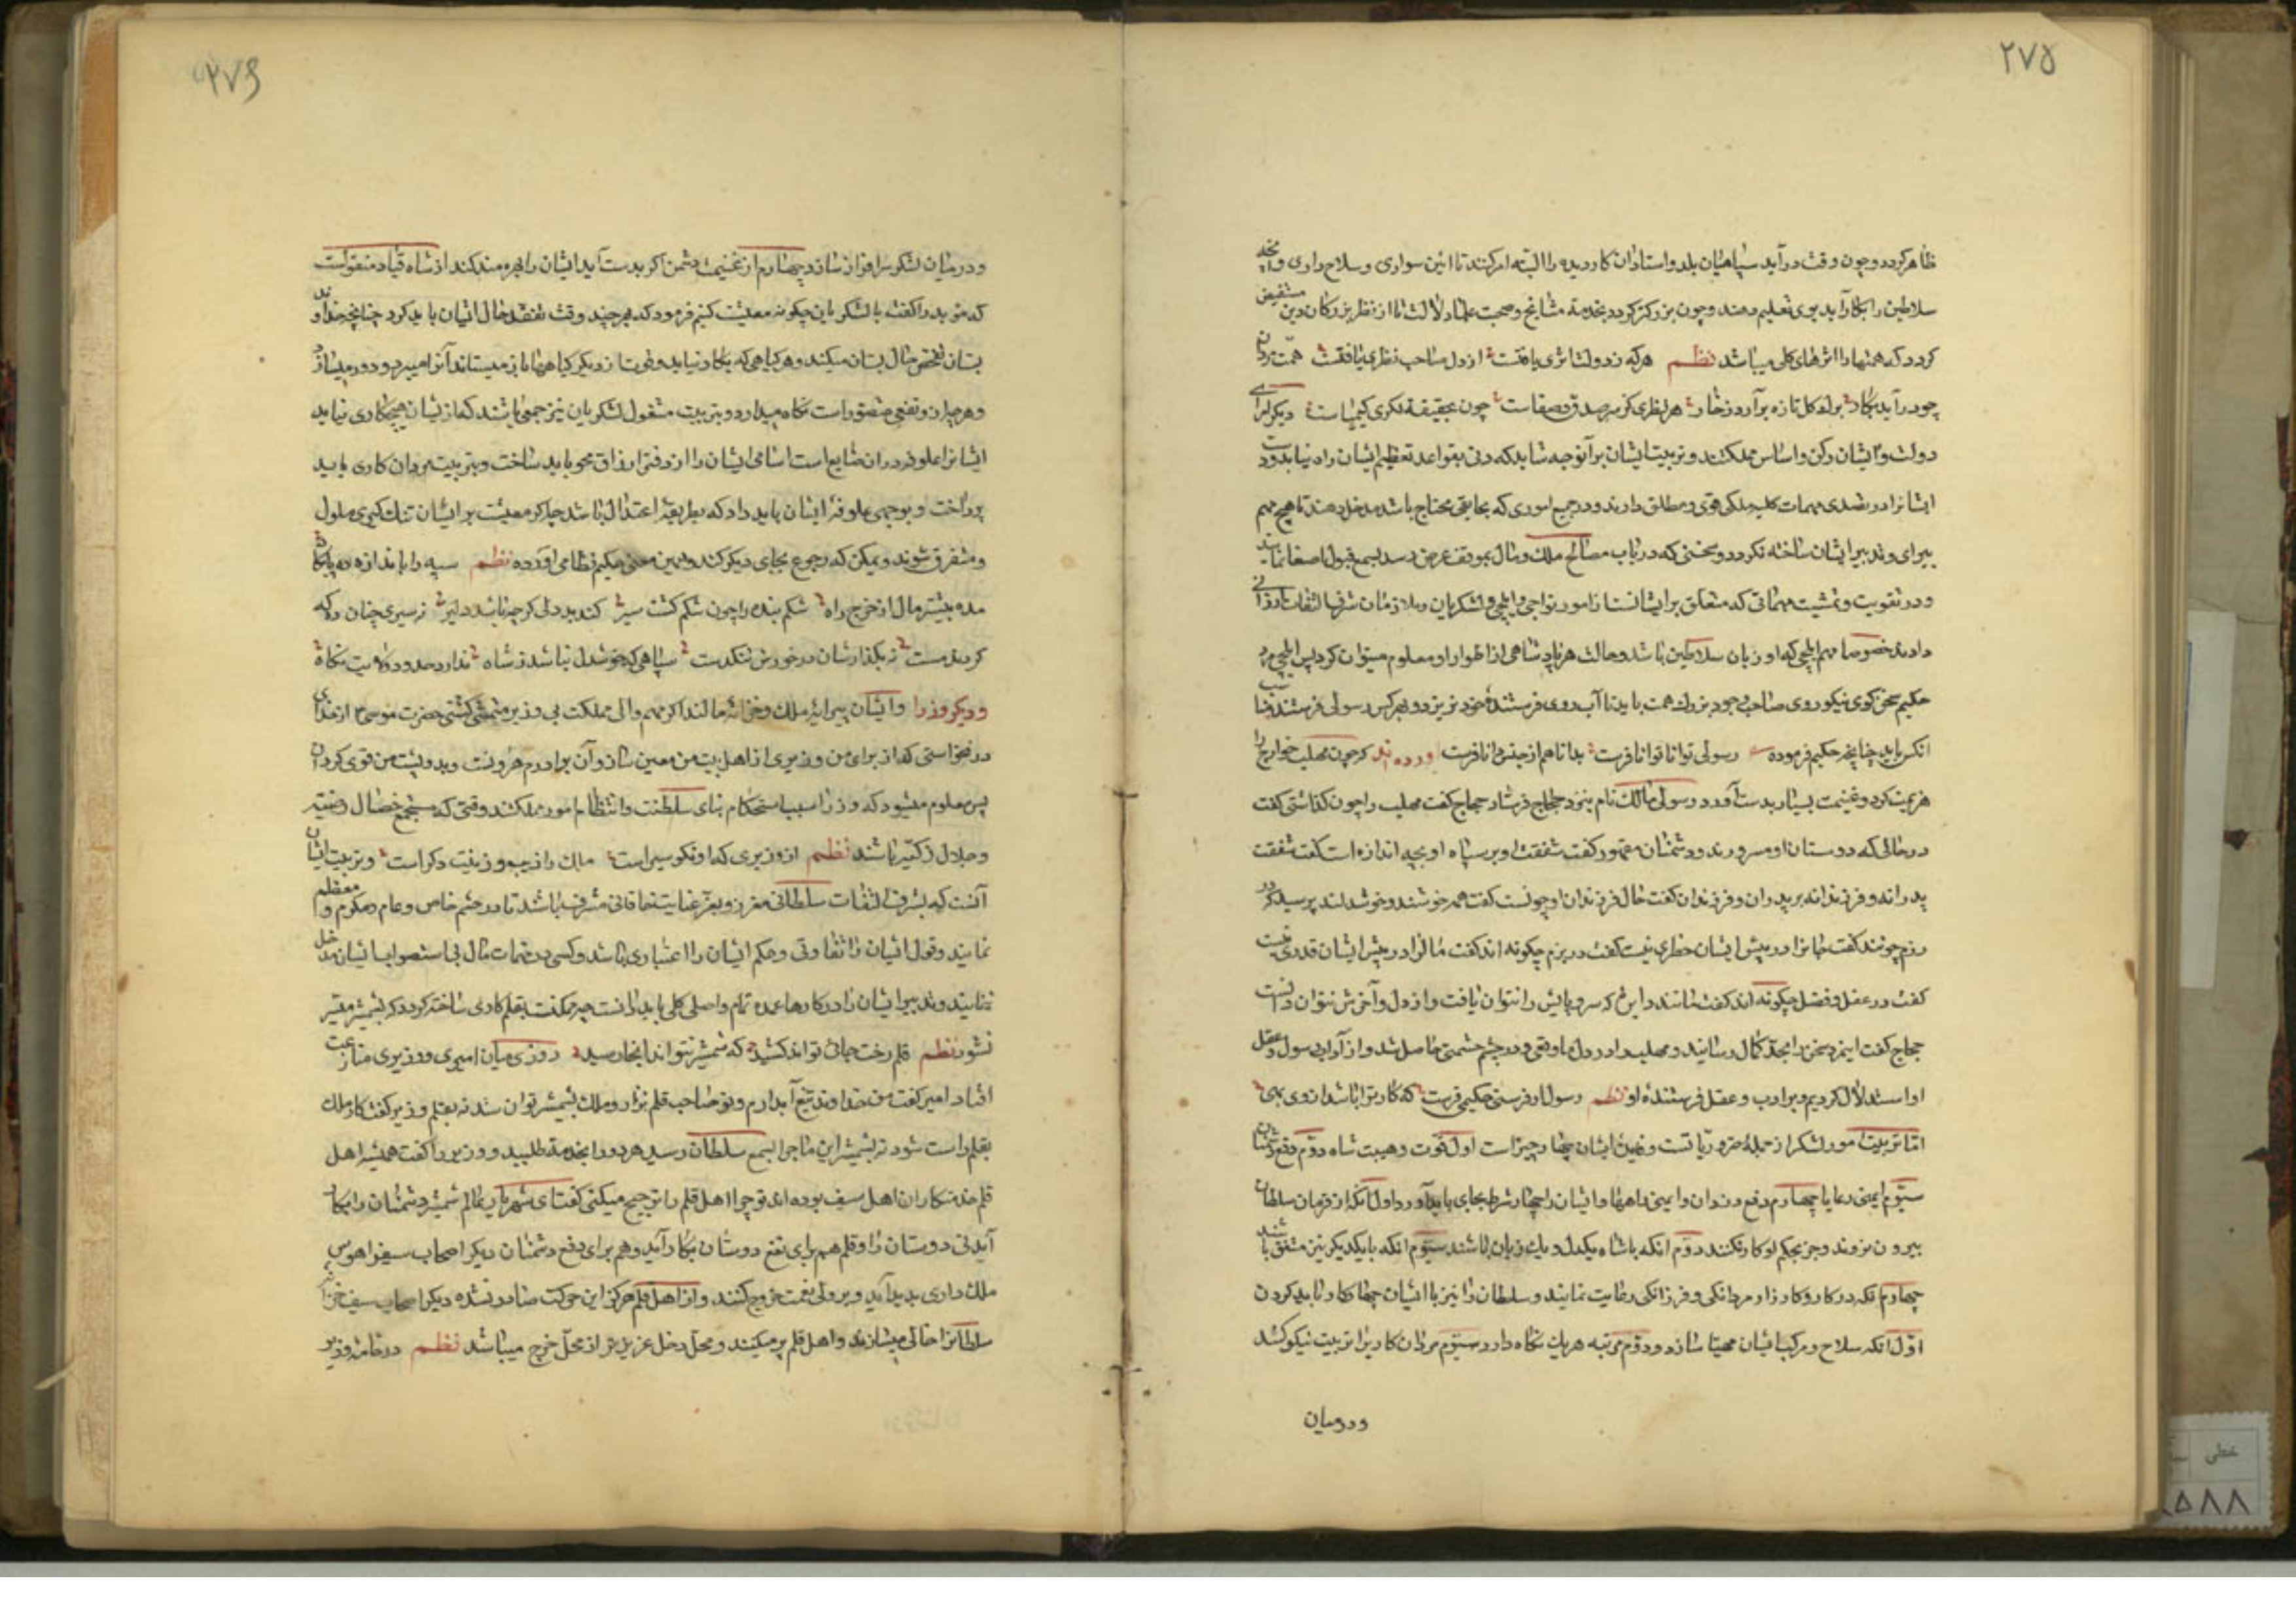 ۲۷۵
ظاهر کردد و چون وقت در آید سپاهیان بلد و استادان کار دیده را البته امر کنند تا ائین سواری و سلاح داری و انچه
سلاطین را بکار آید بوی تعلیم دهند و چون بزرکتر کردد بخدمة مشایخ و صحبت علما دلالت تا از نظر بزرکان دین مستفیض
کردد که همتها را اثرهای کلی میباشد نظم هر که ز دولت اثری یافتست از دل صاحب نظری یافتست همت مردان
چو در آید بکار برلو کل تازه برآرد ز خار هر نظری کز سر صدق و صفاست چون بحقیقة نکری کیمیاست دیکر امرای
دولت و ایشان رکن و اساس مملکتند و تربیت ایشان بر آنوجه شاید که دنی بقواعد تعظیم ایشان راه نیابد و دست
ایشانرا در تصدی مهمات کلیه ملکی قوی و مطلق دارند و در جمیع اموری که بجانبی محتاج باشد مدخل دهند تا هیچ مهم
بیرای و تدبیر ایشان ساخته نکردد و سخنی که در باب مصالح ملک و مال بموقف عرض رسد بسمع قبول اصغا نمایند
و در تقویت و تمشیت مهماتی که متعلق بر ایشانست از امور نواحی و ایلچی و لشکریان و ملازمان شرف التفات ارزانی
دارند خصوصا مهم ایلچی که او زبان سلاطین باشد و حالت هر پادشاهی از اطوار او معلوم میتوان کرد پس ایلچی مرد
حکیم سخن کوی نیکو روی صاحب وجود بزرك همت باید تا آب روی فرستندهٔ خود نریزد و بهر کس رسولی فرستند مناسب
انکس باید چنانچه حکیم فرموده رسولی توانا توانا فرست بدانا هم از جنس دانا فرست آورده اند که چون مهلب خوارج را
هزیمت کرد و غنیمت بسیار بدست آورد رسولی مالک نام بنزد حجاج فرستاد حجاج کفت مهلب را چون کذاشتی کفت
در حالی که دوستان او مسرورند و دشمنان مقهور کفت شفقت او بر سپاه او بچه اندازه است کفت شفقت
پدرانه و فرزندانه بر پدران و فرزندان کفت حال فرزندان او چونست کفت همه خوشند و خوشدلند پرسید که در
رزم چونند کفت جانرا در پیش ایشان خطری نیست کفت در بزم چکونه اند کفت مالرا در پیش ایشان قدری نیست
کفت در عقل و فضل چکونه اند کفت مانند دایره که سر و پایش را نتوان یافت و از دل و آخرش نتوان دانست
حجاج کفت اینمرد سخن را بحد کمال رسانید و مهلب را در دل ما وقعی و در چشم حشمتی حاصل شد و از آداب رسول و عقل
او استدلال کردیم بر ادب و عقل فرستندهٔ او نظم رسول ار فرستی حکیمی فرست که کار ترا باشد از وی بهی
اما تربیت امور لشکر از جملهٔ ضروریاتست و نفع ایشان چهار چیز است اول قوت و هیبت شاه دوّم دفع دشمنان
سیّوم ایمنی رعایا چهارم دفع دزدان و ایمنی راهها و ایشان را چهار شرط بجای باید آورد اول آنکه از فرمان سلطان
بیرون نروند و جز بحکم او کار نکنند دوّم انکه با شاه یکدل و یك زبان باشند سیّوم انکه با یکدیکر نیز متفق باشند
چهارم انکه در کار و کارزار مردانکی و فرزانکی رعایت نمایند و سلطان را نیز با ایشان چهار کار باید کردن
اوّل انکه سلاح و مرکب ایشان مهیّا سازد و دوّم مرتبه هر یك نکاه دارد سیّوم مردان کاری را تربیت نیکو کند
و در میان
۲۷۶
و در میان لشکر سرافراز سازد چهارم از غنیمت دشمن اکر بدست آید ایشان را بهره مند کند از شاه قباد منقولست
که موبد را کفت با لشکریان چکونه معیشت کنیم فرمود که هر چند وقت تفقد حال ایشان باید کرد چنانچه خداوند
بستان تفحص حال بستان میکند و هر کیاهی که بکار نیاید و قوت از دیکر کیاهها باز میستاند آنرا میبرد و دور میسازد
و هر چه در او نفعی متصور است نکاه میدارد و بتربیت مشغول لشکریان نیز جمعی باشند که از ایشان هیچ کاری نیاید
ایشانرا علوفه دادن ضایع است اسامی ایشان را از دفتر ارزاق محو باید ساخت و بتربیت مردان کاری باید
پرداخت و بوجهی علوفهٔ ایشان باید داد که بطریقهٔ اعتدال باشد چه اکر معیشت بر ایشان تنك کیری ملول
و متفرق شوند و یمکن که رجوع بجای دیکر کنند و همین معنی حکیم نظامی آورده نظم سپه را باندازه ده پایکاه
مده بیشتر مال از خرج راه شکم بنده را چون شکم کشت سیر کند بد دلی کر چه باشد دلیر نه سیری چنان ده که
کردند مست نه بکذارشان در خورش تنکدست سپاهی که خوشدل نباشد ز شاه ندارد حدود ولایت نکاه
و دیکر وزرا و ایشان پیرایهٔ ملك و خزانهٔ مالند اکر مهم والی مملکت بی وزیر متمشی کشتی حضرت موسی ع از خدای
در نخواستی که از برای من وزیری از اهل بیت من معین ساز و آن برادرم هرونست و بدو پشت من قوی کردان
پس معلوم میشود که وزرا سبب استحکام بنای سلطنت و انتظام امور مملکتند وقتی که مستجمع خصال رضیّه
و جلال زکیّه باشند نظم از وزیری که او نکو سیر است ملك را زیب و زینت دکر است و تربیت ایشان
آنست که بشرف التفات سلطانی معزز و بعزّ عنایت خاقانی مشرف باشند تا در چشم خاص و عام مکرم و معظم
نمایند و قول ایشان را تفاوتی و حکم ایشان را اعتباری باشد و کسی در مهمات مال بی استصواب ایشان مدخل
ننمایند و تدبیر ایشان را در کارها عمده تمام و اصلی کلی باید دانست چه ممکنست بقلم کاری ساخته کردد که بشمشیر میسّر
نشود نظم قلم رخت جائی تواند کشید که شمشیر نتواند آنجا رسید روزی میان امیری و وزیری منازعت
افتاد امیر کفت من خداوند تیغ آبدارم و تو صاحب قلم نزار و ملك بشمشیر توان ستد نه بقلم وزیر کفت کار ملك
بقلم راست شود نه بشمشیر این ماجرا بسمع سلطان رسید هر دو را بخدمة طلبید و وزیر را کفت همیشه اهل
قلم خدمتکاران اهل سیف بوده اند تو چرا اهل قلم را ترجیح میکنی کفت ای شهریار عالم شمشیر دشمنان را بکار
آید نی دوستان را و قلم هم برای نفع دوستان بکار آید و هم برای دفع دشمنان دیکر اصحاب سیف را هوس
ملك داری پدید آید و بر ولی نعمت خروج کنند و از اهل قلم هرکز این حرکت صادر نشده دیکر اصحاب سیف خزانه
سلطانرا خالی میسازند و اهل قلم پر میکنند و محل دخل عزیزتر از محل خرج میباشد نظم در خامهٔ وزیر
خطی
۵۸۸